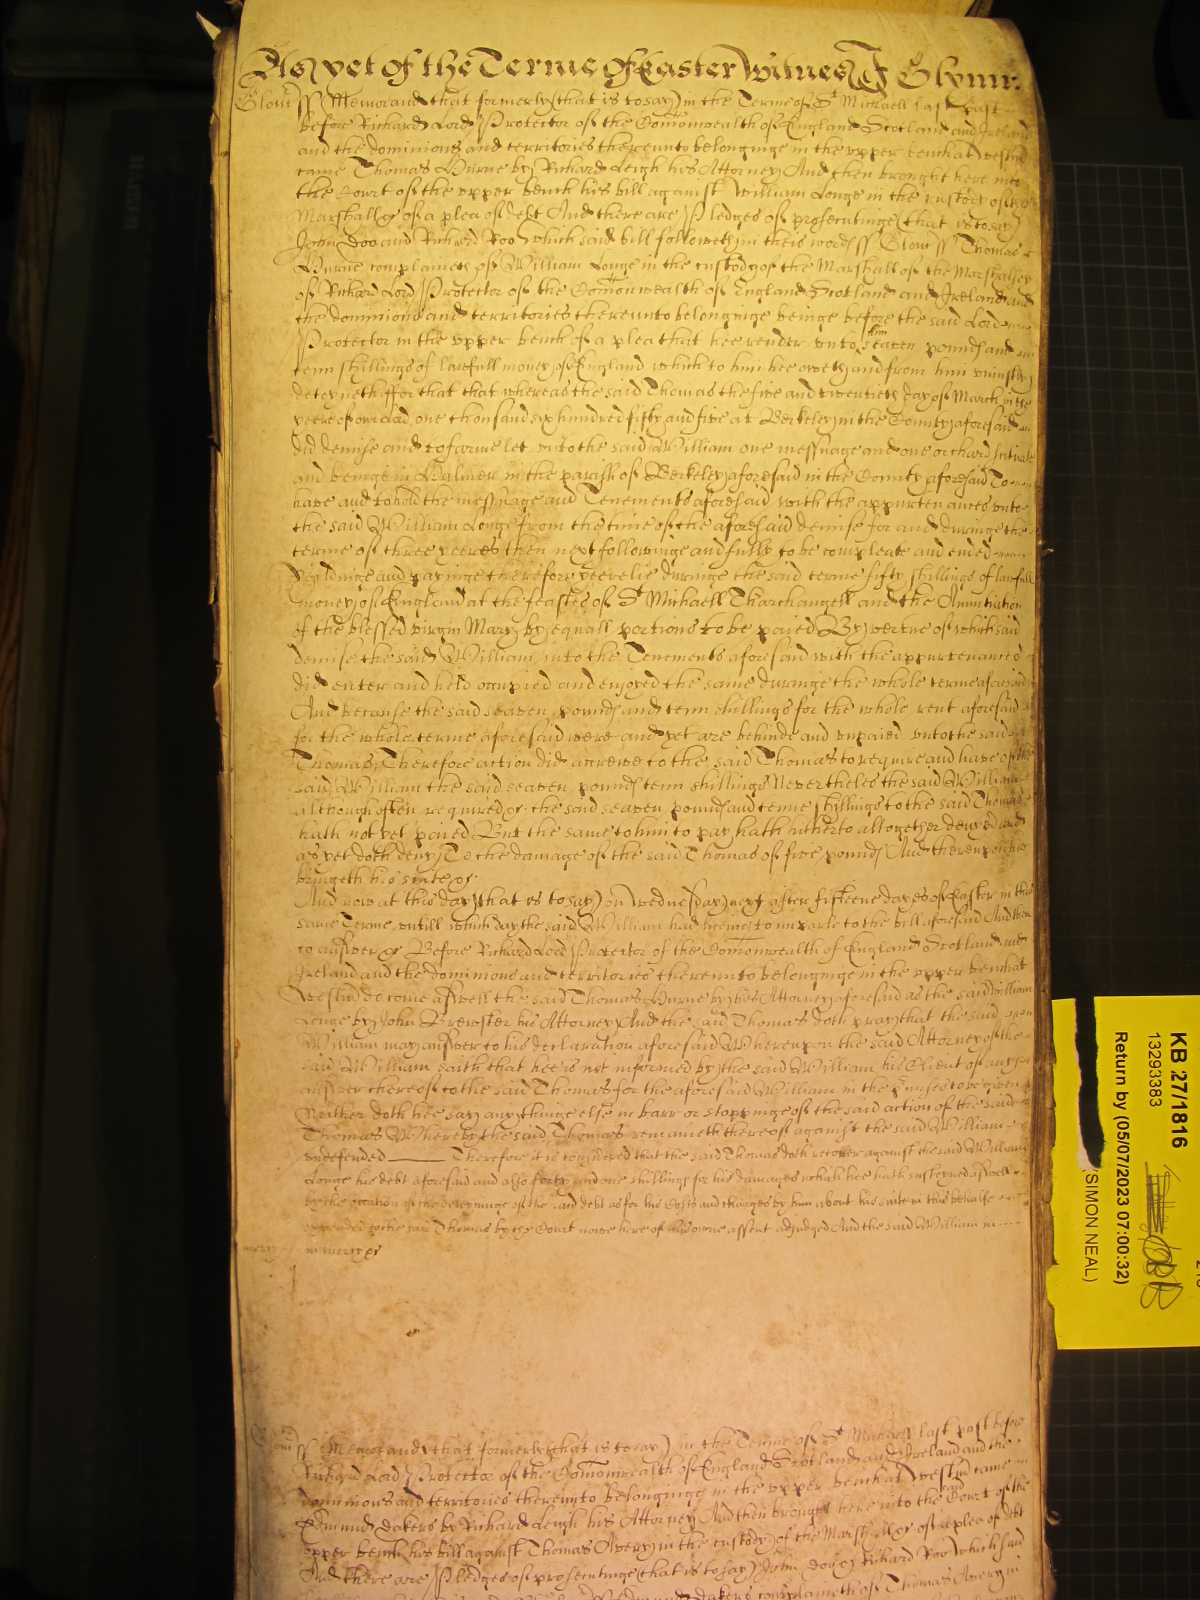 As yet of the Terme of Easter Witnes J Glynn:
Glouc ss Memorand that formerly (that is to say) in the Terme of St Michaell last past
before Richard Lord Protector of the Comonwealth of England Scotland and Ireland
and the dominions and territories thereunto belonginge in the upper bench at Westm
came Thomas Hurne by Richard Leigh his Attorney And then brought here into
the Court of the upper bench his bill against William Longe in the custody of the
Marshall &c of a plea of debt And there are Pledges of prosecutinge (that is to say)
John Doo and Richard Roo which said bill followeth in theis words ss Glouc ss Thomas
Hurne complaineth of William Longe in the custody of the Marshall of the Marshalsey
of Richard Lord Protector of the Comonwealth of England Scotland and Ireland and
the dominions and territories thereunto belonginge beinge before the said Lord
Protector in the upper bench of a plea that hee render unto him seaven pounds and
tenn shillings of lawfull money of England which to him hee oweth and from him uniustly
deteyneth ffor that that whereas the said Thomas the five and twentieth day of March in the
yeere of our Lord one thousand six hundred fifty and five at Berkeley in the County aforesaid
did demise and to farme let unto the said William one messuage and one orchard scituate
and beinge in Halmer in the parish of Berkeley aforesaid in the County aforesaid To
have and to hold the messuage and Tenements aforesaid with the appurtenances unto
the said William Longe from the time of the aforesaid demise for and duringe the
terme of three yeeres then next followinge and fully to be compleate and ended
Yeildinge and payinge therefore yeerelie duringe the said terme fifty shillings of lawfull
money of England at the feastes of St Michaell Tharchangell and the Anuntiation
of the blessed virgin Mary by equall portions to be paied By vertue of which said
demise the said William into the Tenements aforesaid with the appurtenances
did enter and held occupied and enjoyed the same duringe the whole terme aforesaid
And because the said seaven pounds and tenn shillings for the whole rent aforesaid
for the whole terme aforesaid were and yet are behinde and unpaied unto the said
Thomas, Therefore action did accrewe to the said Thomas to require and have of the
said William the said seaven pounds tenn shillings Nevertheles the said William
although often required &c the said seaven pounds and tenne shillings to the said Thomas
hath not yet paied But the same to him to pay hath hitherto altogether denyed and
as yet doth deny To the damage of the said Thomas of five pounds And thereupon hee
bringeth his suite &c
And now at this day (that is to say) on Wednesday next after fifteene dayes of Easter in this
same Terme untill which day the said William had licence to imparle to the bill aforesaid And then
to answer &c Before Richard Lord Protector of the Comonwealth of England Scotland and
Ireland and the dominions and territories thereunto belonginge in the upper bench at
Westm do come aswell the said Thomas Hurne by his Attorney aforesaid as the said William
Longe by John Brewster his Attorney And the said Thomas doth pray that the said
William may answer to his declaration aforesaid Whereupon the said Attorney of the
said William saith that hee is not informed by the said William his Client of any
answer thereof to the said Thomas for the aforesaid William in the pmises to be given
Neither doth hee say any thinge else in barr or stoppinge of the said action of the said
Thomas Whereby the said Thomas remaineth thereof against the said William
undefended Therefore it is considered that the said Thomas doth recover against the said William
Longe his debt aforesaid and also forty and one shillings for his damages which hee hath susteyned aswell
by the occation of the deteyninge of the said debt as for his Costs and charges by him about his suite in this behalfe
expended to the said Thomas by the Court nowe here of his owne assent adjudged And the said William in
mercy in mercy &c
Glouc ss Memorand that formerly (that is to say) in the Terme of St Michaell last past before
Richard Lord Protector of the Comonwealth of England Scotland and Ireland and the
dominions and territories thereunto belonginge in the upper bench at Westm came
Edmund Dakers by Richard Leigh his Attorney And then brought here into the said Court of the
upper bench his bill against Thomas Avery in the custody of the Marshall &c of a plea of debt
And there are Pledges of prosecutinge (that is to say) John Doo & Richard Roo which said
Dakers complaineth of Thomas Avery in
KB 27/1816
13293383
Return by (05/07/2023 07:00:32)
(SIMON NEAL)